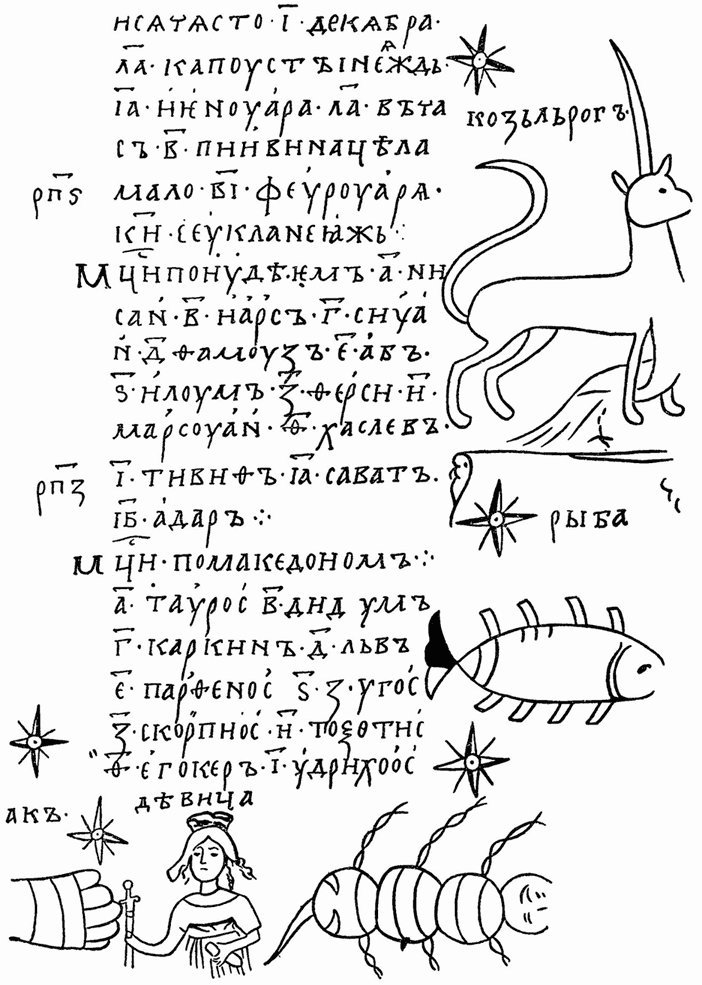 НСАЧАСТО · І҃ · ДЕКАБРА ·
ЛА҃ · КАПОУСТЪІНЕѨЖДЬ ·
ІА҃ · НЕНОУАРА · ЛА҃ · ВЪТА
СЪ · В҃ · ПНИВИНАЦѢЛА
РП҃Ѕ МАЛО · ВІ҃ · ФЕУРОУАРѦ ·
КН҃ · СЕУКЛАНЕꙖЖЬ ⁘
М ЦН҃ПОИУДѢѤМЪ · А҃ · НИ
САН · В҃ · НАРСЪ · Г҃ · СНУА
Н · Д҃ · ѲАМОУЗЪ · Е҃ · АВЪ ·
Ѕ҃ · НЛОУМЪ · З҃ · ѲЕРСН · Н҃ ·
МАРСОУАН · Ѳ҃ · ХАСЛЕВЪ ·
РП҃З І҃ · ТНВНѲЪ · ІА҃ · САВАТЪ ·
ІВ҃ · АДАРЪ ⁘
М ЦН҃ · ПОМАКЕДОНОМЪ ⁘
А҃ · ТАУРОС В҃ · ДНД УМЪ
Г҃ · КАРКННЪ · Д҃ · ЛЬВЪ
Е҃ · ПАРѲЕНОС Ѕ҃ · З · УГОС
З҃ · СКОРПНОС · Н҃ · ТОѮОТНС
Ѳ҃ · ЕГОКЕРЪ · І҃ · УДРНХООС
КОЗЬЛЬРОГЪ ·
РЫБА
АКЪ ·
ДѢВИЦА